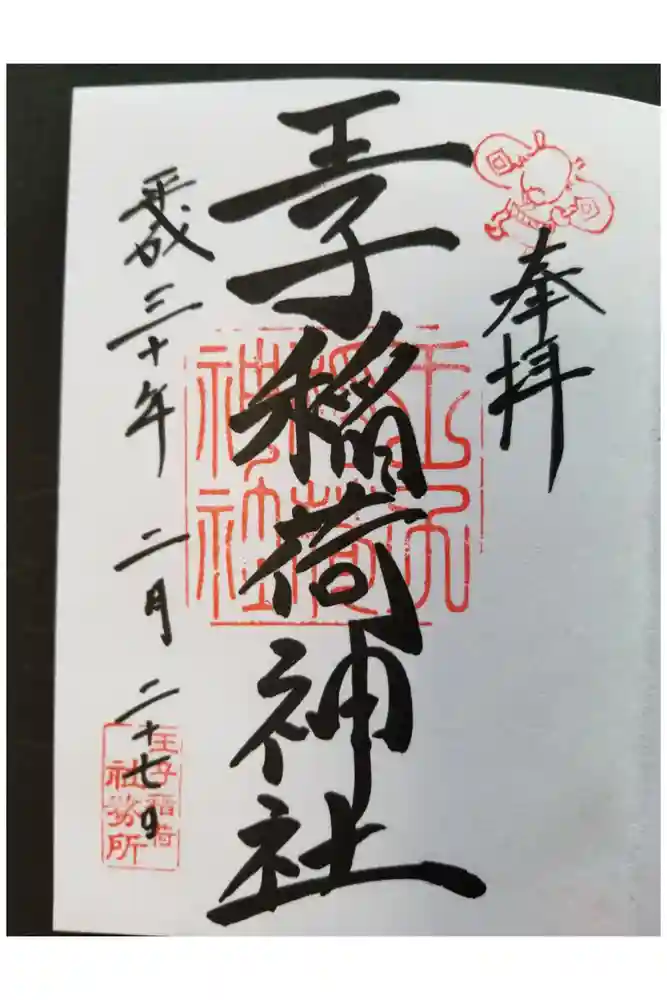 奉拝
王子稲荷神社
王子稲荷神社
平成三十年 二月 二十七日
王子稲荷
社務所